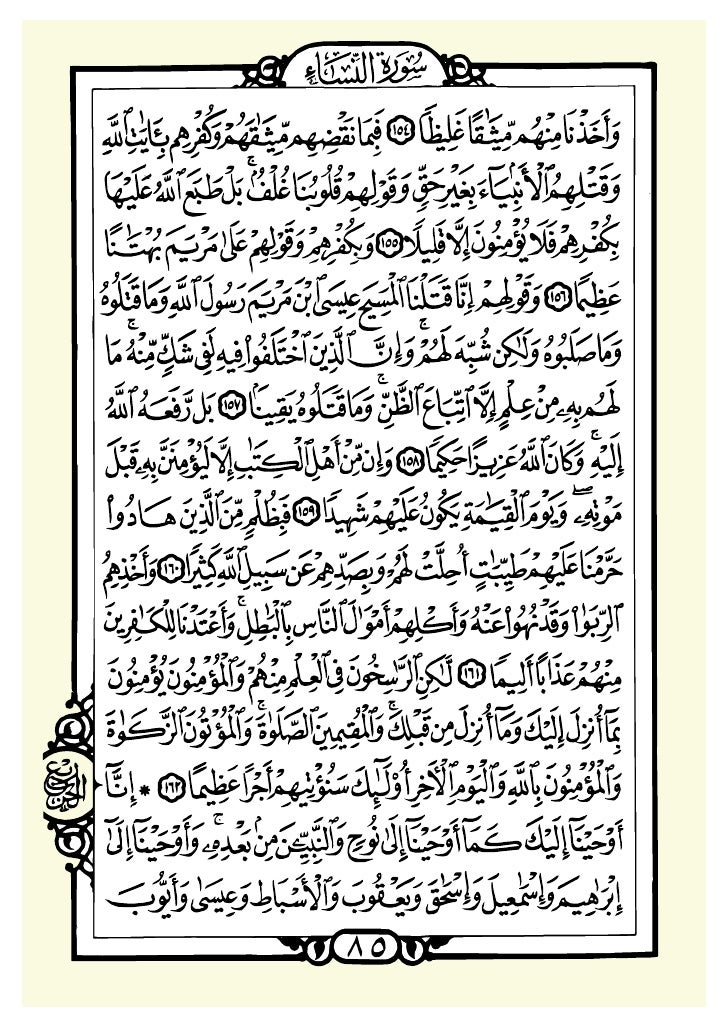 سُورَةُ النِّسَاءِ
وَأَخَذْنَا مِنْهُم مِّيثَٰقًا غَلِيظًا ١٥٤ فَبِمَا نَقْضِهِم مِّيثَٰقَهُمْ وَكُفْرِهِم بِـَٔايَٰتِ ٱللَّهِ
وَقَتْلِهِمُ ٱلْأَنۢبِيَآءَ بِغَيْرِ حَقٍّ وَقَوْلِهِمْ قُلُوبُنَا غُلْفٌۢ ۚ بَلْ طَبَعَ ٱللَّهُ عَلَيْهَا
بِكُفْرِهِمْ فَلَا يُؤْمِنُونَ إِلَّا قَلِيلًا ١٥٥ وَبِكُفْرِهِمْ وَقَوْلِهِمْ عَلَىٰ مَرْيَمَ بُهْتَٰنًا
عَظِيمًا ١٥٦ وَقَوْلِهِمْ إِنَّا قَتَلْنَا ٱلْمَسِيحَ عِيسَى ٱبْنَ مَرْيَمَ رَسُولَ ٱللَّهِ وَمَا قَتَلُوهُ
وَمَا صَلَبُوهُ وَلَٰكِن شُبِّهَ لَهُمْ ۚ وَإِنَّ ٱلَّذِينَ ٱخْتَلَفُوا۟ فِيهِ لَفِى شَكٍّ مِّنْهُ ۚ مَا
لَهُم بِهِۦ مِنْ عِلْمٍ إِلَّا ٱتِّبَاعَ ٱلظَّنِّ ۚ وَمَا قَتَلُوهُ يَقِينًۢا ١٥٧ بَل رَّفَعَهُ ٱللَّهُ
إِلَيْهِ ۚ وَكَانَ ٱللَّهُ عَزِيزًا حَكِيمًا ١٥٨ وَإِن مِّنْ أَهْلِ ٱلْكِتَٰبِ إِلَّا لَيُؤْمِنَنَّ بِهِۦ قَبْلَ
مَوْتِهِۦ ۖ وَيَوْمَ ٱلْقِيَٰمَةِ يَكُونُ عَلَيْهِمْ شَهِيدًا ١٥٩ فَبِظُلْمٍ مِّنَ ٱلَّذِينَ هَادُوا۟
حَرَّمْنَا عَلَيْهِمْ طَيِّبَٰتٍ أُحِلَّتْ لَهُمْ وَبِصَدِّهِمْ عَن سَبِيلِ ٱللَّهِ كَثِيرًا ١٦٠ وَأَخْذِهِمُ
ٱلرِّبَوٰا۟ وَقَدْ نُهُوا۟ عَنْهُ وَأَكْلِهِمْ أَمْوَٰلَ ٱلنَّاسِ بِٱلْبَٰطِلِ ۚ وَأَعْتَدْنَا لِلْكَٰفِرِينَ
مِنْهُمْ عَذَابًا أَلِيمًا ١٦١ لَّٰكِنِ ٱلرَّٰسِخُونَ فِى ٱلْعِلْمِ مِنْهُمْ وَٱلْمُؤْمِنُونَ يُؤْمِنُونَ
بِمَآ أُنزِلَ إِلَيْكَ وَمَآ أُنزِلَ مِن قَبْلِكَ ۚ وَٱلْمُقِيمِينَ ٱلصَّلَوٰةَ ۚ وَٱلْمُؤْتُونَ ٱلزَّكَوٰةَ
وَٱلْمُؤْمِنُونَ بِٱللَّهِ وَٱلْيَوْمِ ٱلْأَخِرِ أُو۟لَٰٓئِكَ سَنُؤْتِيهِمْ أَجْرًا عَظِيمًا ١٦٢ * إِنَّآ
ربع الحزب
أَوْحَيْنَآ إِلَيْكَ كَمَآ أَوْحَيْنَآ إِلَىٰ نُوحٍ وَٱلنَّبِيِّۦنَ مِنۢ بَعْدِهِۦ ۚ وَأَوْحَيْنَآ إِلَىٰٓ
إِبْرَٰهِيمَ وَإِسْمَٰعِيلَ وَإِسْحَٰقَ وَيَعْقُوبَ وَٱلْأَسْبَاطِ وَعِيسَىٰ وَأَيُّوبَ
٨٥